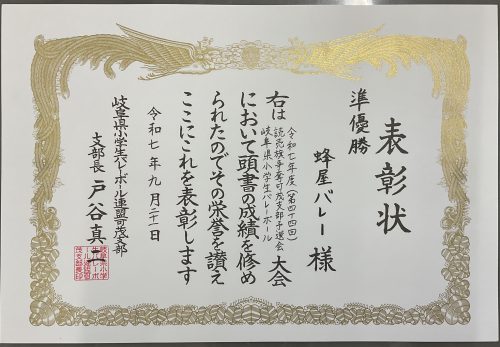 表彰状
準優勝
蜂屋バレー 様
右は 令和七年度(第四十四回)
読売旗争奪可茂支部予選会
岐阜県小学生バレーボール 大会
において頭書の成績を修め
られたのでその栄誉を讃え
ここにこれを表彰します
令和七年九月二十一日
岐阜県小学生バレーボール連盟可茂支部
支部長 戸谷真一